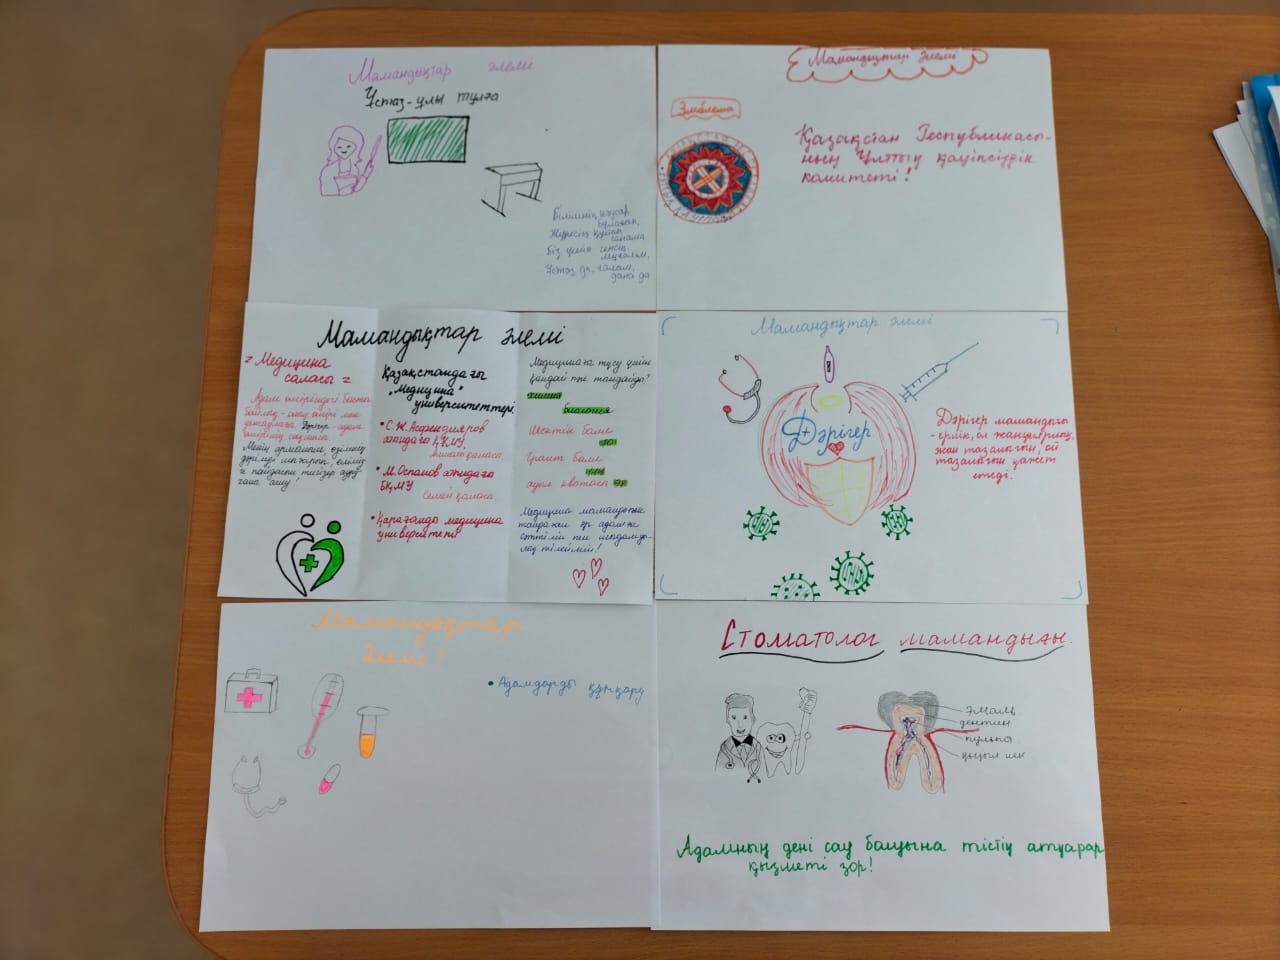 Мамандықтар әлемі
Ұстаз-ұлы тұлға
Білімнің кәусар
бұлағын,
Жүрсің құйып
санама
Біз үшін сенсің,
Ұстаз да, ғалам,
дана да
Мамандықтар әлемі
Эмблема
Қазақстан Республикасы-
ның Ұлттық қауіпсіздік
комитеті!
Мамандықтар әлемі
Медицина
саласы
Адам өміріндегі басты
байлық - оның өмірі мен
Дәрігер - адам
Менің арманым өзімнің
Қазақстандағы
"Медицина"
университеттері
• С.Ж. Асфендияров
атындағы ҚҰМУ
Алматы қаласы
• М.Оспанов атындағы
БҚМУ
Семей қаласы
• Қарағанды медицина
университеті
Медицинаға түсу үшін
қандай пән таңдайды?
химия
биология
Шектік балл
Грант балл
ауыл квотасы
Медицина мамандығын
таңдаған әр адамға
сәттілік пен шыдамды-
лық тілеймін!
Мамандықтар әлемі
Дәрігер
Дәрігер мамандығы
- ерлік, ол жанқиярлық,
жан тазалығын, ой
тазалығын қажет
етеді.
Мамандықтар
Әлемі!
• Адамдарды құтқару
Стоматолог мамандығы.
Эмаль
дентин
пульпа
қызыл иек
Адамның дені сау болуына тістің атқарар
қызметі зор!